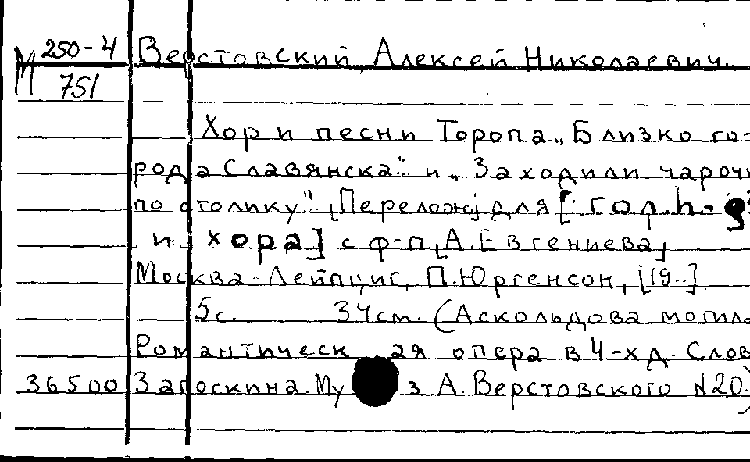 М 250-4 Верстовский, Алексей Николаевич.
751
Хор и песни Торопа „Близко го-
рода Славянска" и „Заходили чароч
по столику". [Перелож] для [голоса
и хора] с ф-п [А. Евгениева]
Москва-Лейпциг, П. Юргенсон, [19..]
5с. 34см. (Аскольдова могила
Романтическ ая опера в 4-х д. Слов
36500 Загоскина. Му з А. Верстовского №20.)